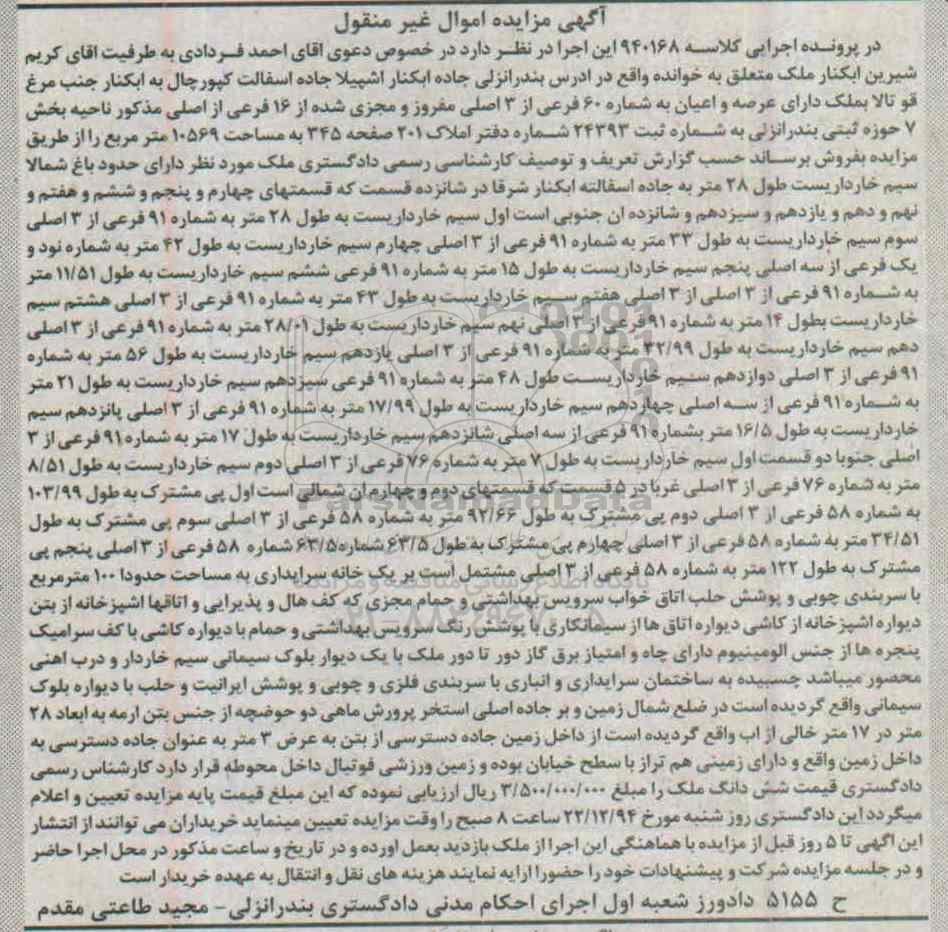 آگهی مزایده اموال غیر منقول
در پرونده اجرایی کلاسه ۹۴۰۱۶۸ این اجرا در نظر دارد در خصوص دعوی اقای احمد فردادی به طرفیت اقای کریم
شیرین ابکنار ملک متعلق به خوانده واقع در ادرس بندرانزلی جاده ابکنار اشپیلا جاده اسفالت کپورچال به ابکنار جنب مرغ
قو تالا بملک دارای عرصه و اعیان به شماره ۶۰ فرعی از ۳ اصلی مفروز و مجزی شده از ۱۶ فرعی از اصلی مذکور ناحیه بخش
۷ حوزه ثبتی بندرانزلی به شماره ثبت ۲۴۳۹۳ شماره دفتر املاک ۲۰۱ صفحه ۳۴۵ به مساحت ۱۰۵۶۹ متر مربع را از طریق
مزایده بفروش برساند حسب گزارش تعریف و توصیف کارشناسی رسمی دادگستری ملک مورد نظر دارای حدود باغ شمالا
سیم خارداریست طول ۲۸ متر به جاده اسفالته ابکنار شرقا در شانزده قسمت که قسمتهای چهارم و پنجم و ششم و هفتم و
نهم و دهم و یازدهم و سیزدهم و شانزده ان جنوبی است اول سیم خارداریست به طول ۲۸ متر به شماره ۹۱ فرعی از ۳ اصلی
سوم سیم خارداریست به طول ۳۳ متر به شماره ۹۱ فرعی از ۳ اصلی چهارم سیم خارداریست به طول ۴۲ متر به شماره نود و
یک فرعی از سه اصلی پنجم سیم خارداریست به طول ۱۵ متر به شماره ۹۱ فرعی ششم سیم خارداریست به طول ۱۱/۵۱ متر
به شماره ۹۱ فرعی از ۳ اصلی از ۳ اصلی هفتم سیم خارداریست به طول ۴۳ متر به شماره ۹۱ فرعی از ۳ اصلی هشتم سیم
خارداریست بطول ۱۴ متر به شماره ۹۱ فرعی از ۳ اصلی نهم سیم خارداریست به طول ۲۸/۰۱ متر به شماره ۹۱ فرعی از ۳ اصلی
دهم سیم خارداریست به طول ۳۲/۹۹ متر به شماره ۹۱ فرعی از ۳ اصلی یازدهم سیم خارداریست به طول ۵۶ متر به شماره
۹۱ فرعی از ۳ اصلی دوازدهم سیم خارداریست طول ۴۸ متر به شماره ۹۱ فرعی سیزدهم سیم خارداریست به طول ۲۱ متر
به شماره ۹۱ فرعی از سه اصلی چهاردهم سیم خارداریست به طول ۱۷/۹۹ متر به شماره ۹۱ فرعی از ۳ اصلی پانزدهم سیم
خارداریست به طول ۱۶/۵ متر بشماره ۹۱ فرعی از سه اصلی شانزدهم سیم خارداریست به طول ۱۷ متر به شماره ۹۱ فرعی از ۳
اصلی جنوبا دو قسمت اول سیم خارداریست به طول ۷ متر به شماره ۷۶ فرعی از ۳ اصلی دوم سیم خارداریست به طول ۸/۵۱
متر به شماره ۷۶ فرعی از ۳ اصلی غربا در ۵ قسمت که قسمتهای دوم و چهارم ان شمالی است اول پی مشترک به طول ۱۰۳/۹۹
به شماره ۵۸ فرعی از ۳ اصلی دوم پی مشترک به طول ۹۲/۶۶ متر به شماره ۵۸ فرعی از ۳ اصلی سوم پی مشترک به طول
۳۴/۵۱ متر به شماره ۵۸ فرعی از ۳ اصلی چهارم پی مشترک به طول ۶۳/۵ شماره ۶۳/۵ شماره ۵۸ فرعی از ۳ اصلی پنجم پی
مشترک به طول ۱۲۲ متر به شماره ۵۸ فرعی از ۳ اصلی مشتمل است بر یک خانه سرایداری به مساحت حدودا ۱۰۰ مترمربع
با سربندی چوبی و پوشش حلب اتاق خواب سرویس بهداشتی و حمام مجزی که کف هال و پذیرایی و اتاقها اشپزخانه از بتن
دیواره اشپزخانه از کاشی دیواره اتاق ها از سیمانکاری با پوشش رنگ سرویس بهداشتی و حمام با دیواره کاشی با کف سرامیک
پنجره ها از جنس الومینیوم دارای چاه و امتیاز برق گاز دور تا دور ملک با یک دیوار بلوک سیمانی سیم خاردار و درب اهنی
محصور میباشد چسبیده به ساختمان سرایداری و انباری با سربندی فلزی و چوبی و پوشش ایرانیت و حلب با دیواره بلوک
سیمانی واقع گردیده است در ضلع شمال زمین و بر جاده اصلی استخر پرورش ماهی دو حوضچه از جنس بتن ارمه به ابعاد ۲۸
متر در ۱۷ متر خالی از اب واقع گردیده است از داخل زمین جاده دسترسی از بتن به عرض ۳ متر به عنوان جاده دسترسی به
داخل زمین واقع و دارای زمینی هم تراز با سطح خیابان بوده و زمین ورزشی فوتبال داخل محوطه قرار دارد کارشناس رسمی
دادگستری قیمت شش دانگ ملک را مبلغ ۳/۵۰۰/۰۰۰/۰۰۰ ریال ارزیابی نموده که این مبلغ قیمت پایه مزایده تعیین و اعلام
میگردد این دادگستری روز شنبه مورخ ۲۲/۱۲/۹۴ ساعت ۸ صبح را وقت مزایده تعیین مینماید خریداران می توانند از انتشار
این اگهی تا ۵ روز قبل از مزایده با هماهنگی این اجرا از ملک بازدید بعمل اورده و در تاریخ و ساعت مذکور در محل اجرا حاضر
و در جلسه مزایده شرکت و پیشنهادات خود را حضورا ارایه نمایند هزینه های نقل و انتقال به عهده خریدار است
ح ۵۱۵۵ دادورز شعبه اول اجرای احکام مدنی دادگستری بندرانزلی- مجید طاعتی مقدم
ParsNamadData